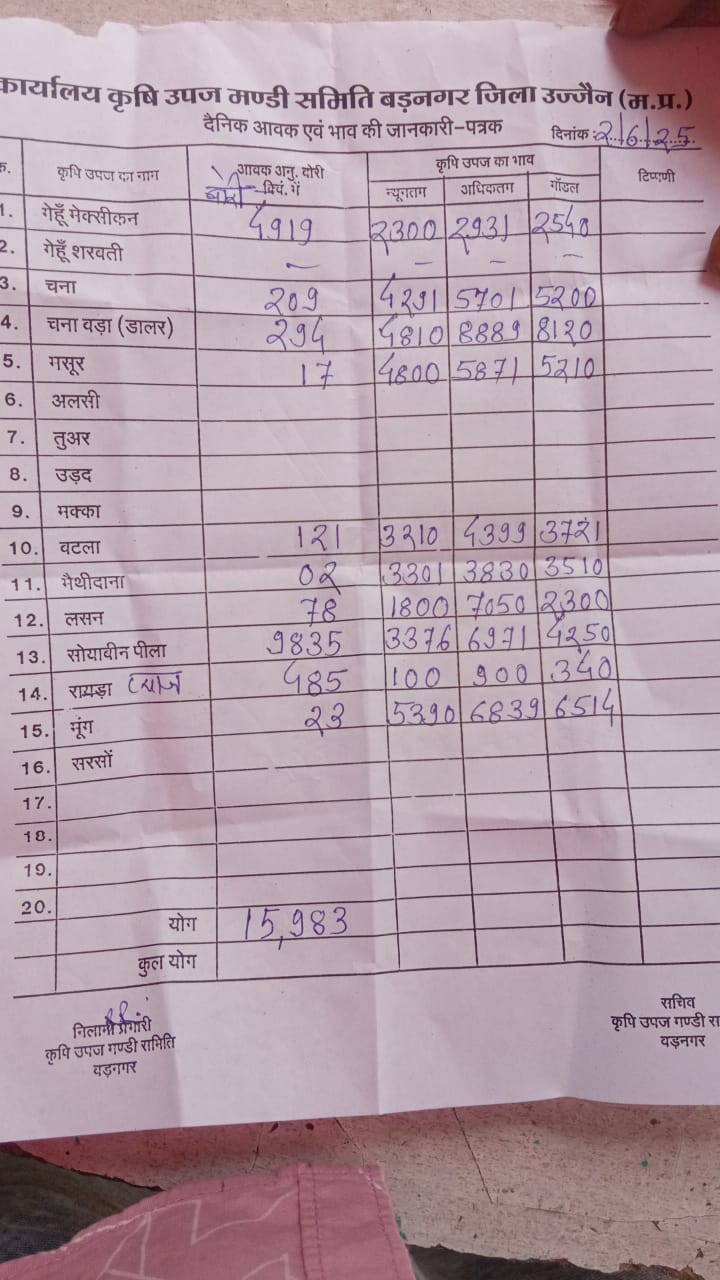 कार्यालय कृषि उपज मण्डी समिति बड़नगर जिला उज्जैन (म.प्र.)
दैनिक आवक एवं भाव की जानकारी-पत्रक दिनांक : 2/6/25
क. कृषि उपज का नाम आवक अनु. बोरी क्विं. में कृषि उपज का भाव टिप्पणी
बोरी न्यूनतम अधिकतम मॉडल
1. गेहूँ मेक्सीकन 4919 2300 2931 2540
2. गेहूँ शरवती – – – –
3. चना 209 4291 5701 5200
4. चना वड़ा (डालर) 294 4810 8889 8120
5. मसूर 17 4800 5871 5210
6. अलसी
7. तुअर
8. उड़द
9. मक्का
10. वटला 121 3210 4399 3721
11. मैथीदाना 02 3301 3830 3510
12. लसन 78 1800 7050 2,300
13. सोयाबीन पीला 9835 3376 6971 4250
14. रायड़ा प्याज 485 100 900 340
15. मूंग 23 5390 6839 6514
16. सरसों
17.
18.
19.
20.
योग 15,983
कुल योग
निलामी प्रभारी
कृषि उपज मण्डी समिति
वड़नगर
सचिव
कृषि उपज मण्डी स
वड़नगर